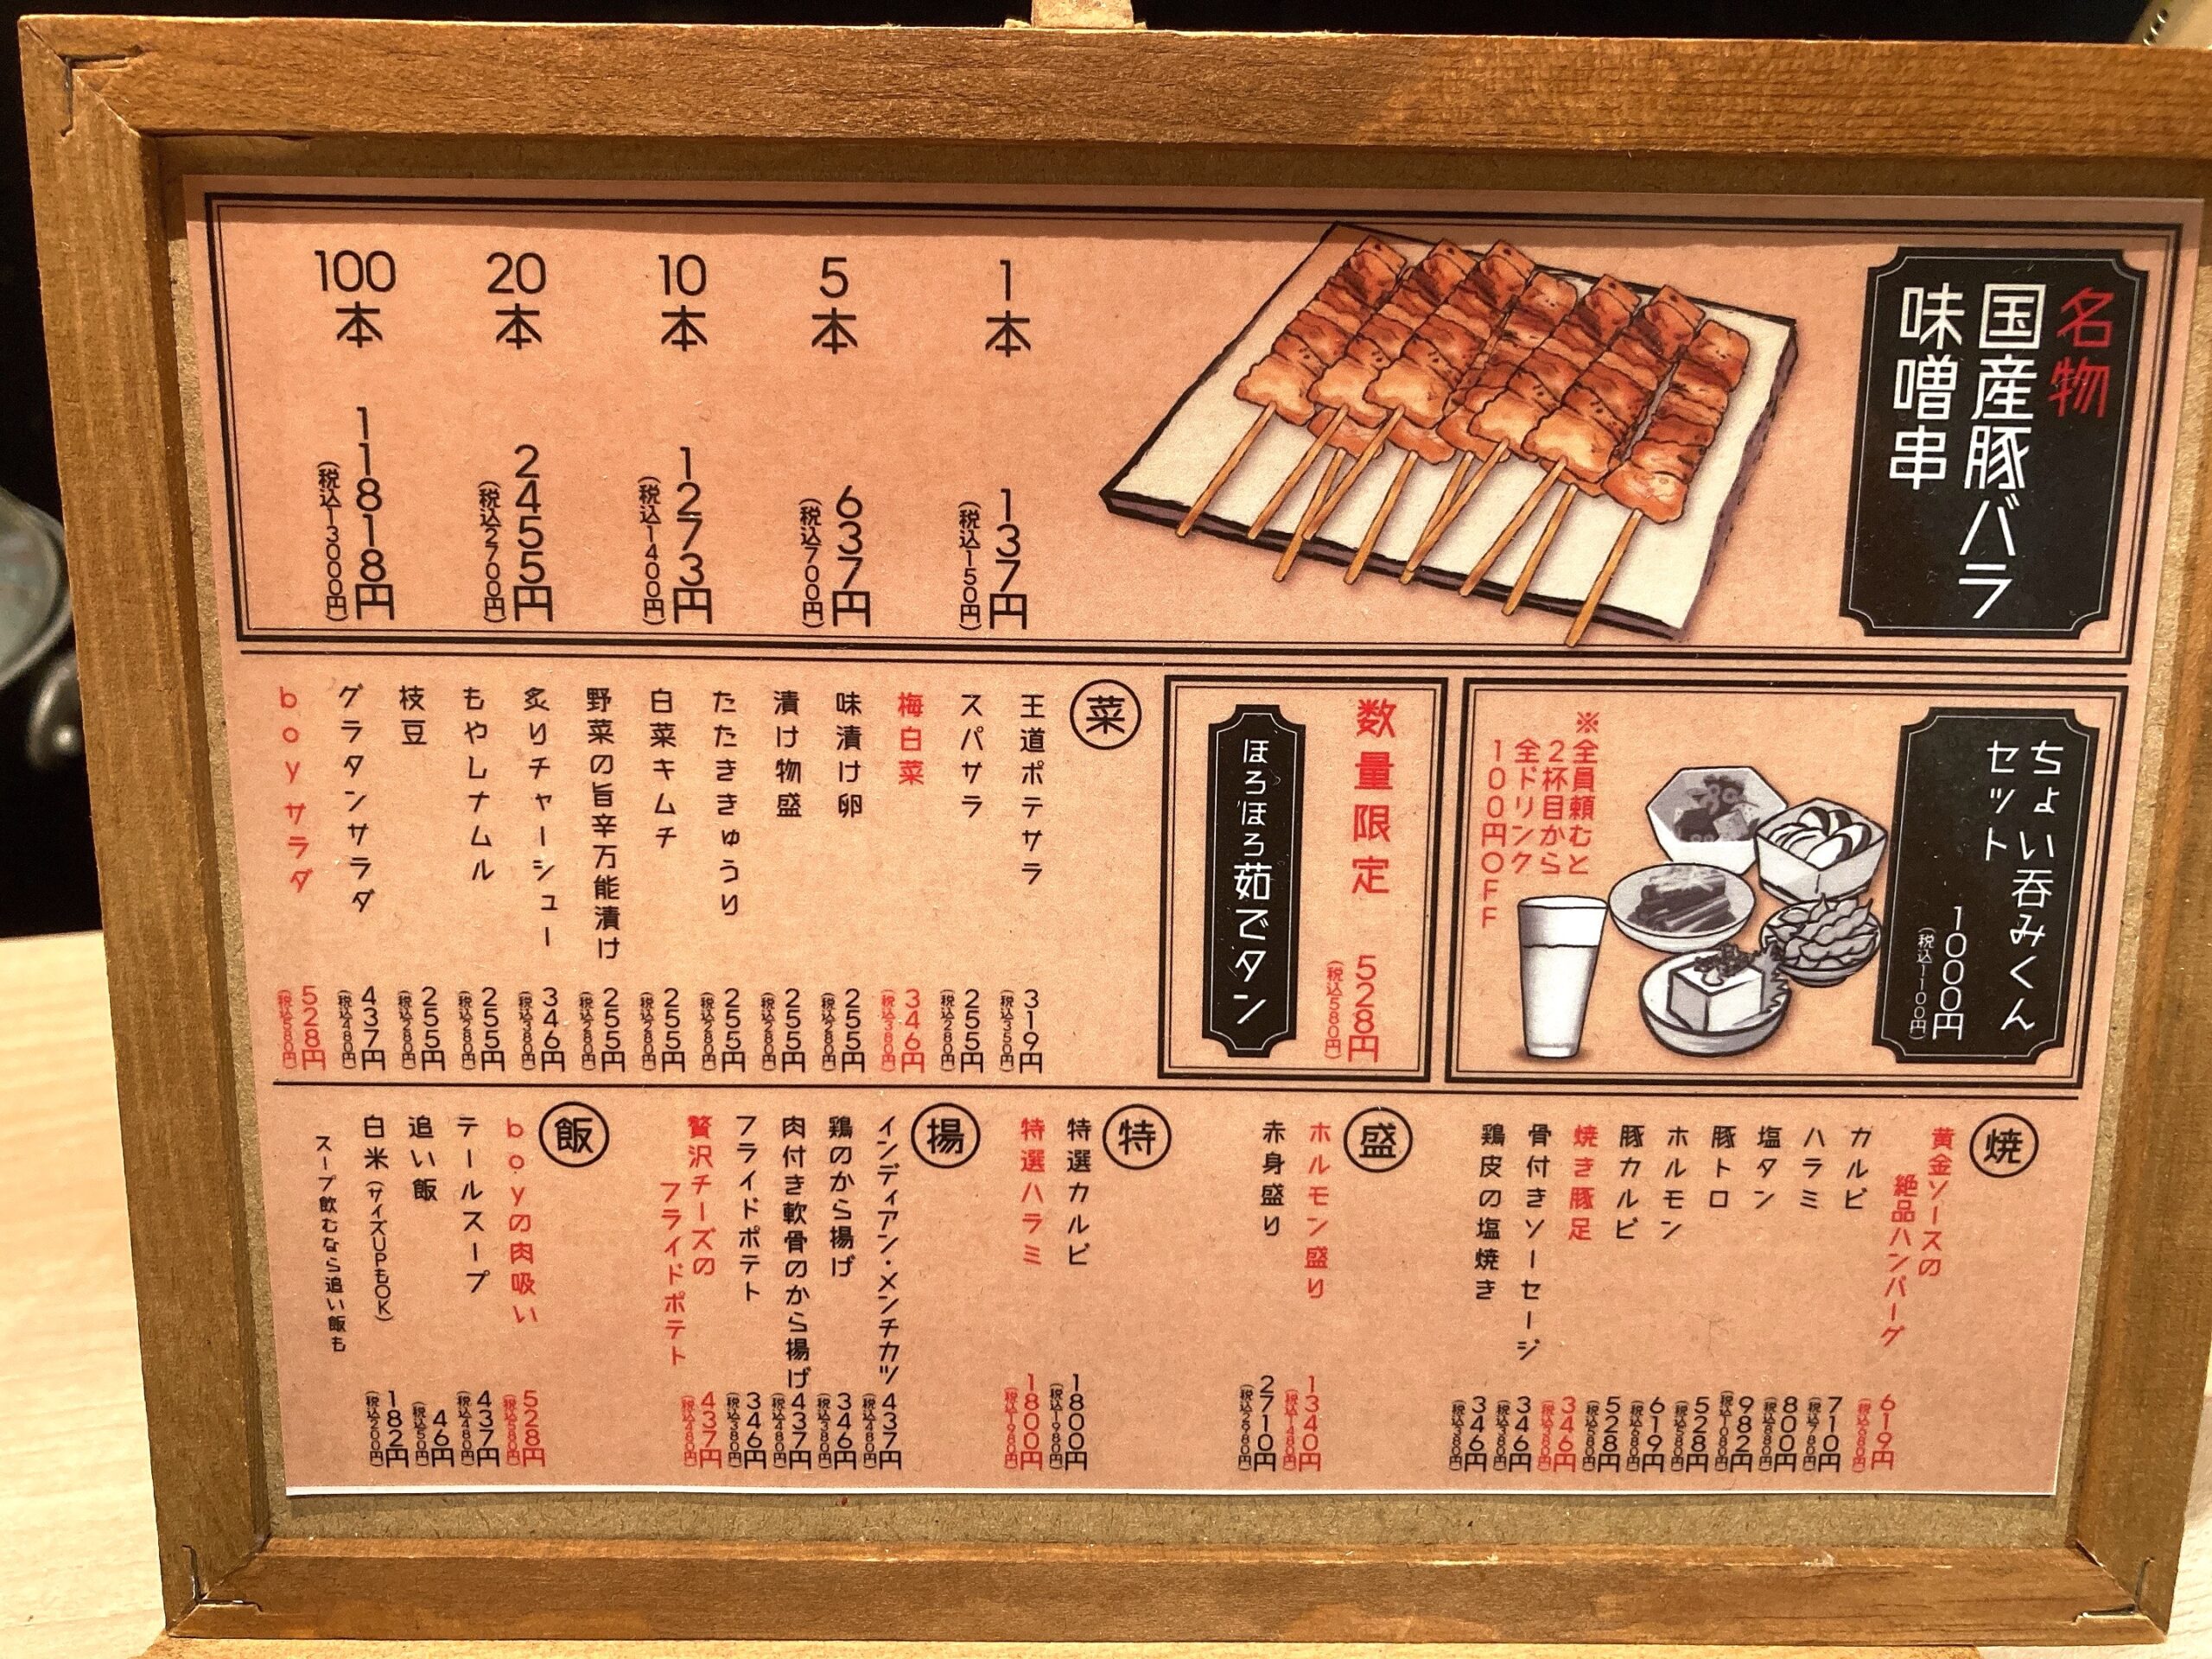 名物
国産豚バラ
味噌串
1本
137円
(税込150円)
5本
637円
(税込700円)
10本
1273円
(税込1400円)
20本
2455円
(税込2700円)
100本
11818円
(税込13000円)
ちょい呑みくん
セット
1000円
(税込1100円)
※全員頼むと
2杯目から
全ドリンク
100円OFF
数量限定
528円
(税込580円)
ほろほろ茹でタン
菜
王道ポテサラ
319円
(税込350円)
スパサラ
255円
(税込280円)
梅白菜
346円
(税込380円)
味漬け卵
255円
(税込280円)
漬け物盛
255円
(税込280円)
たたききゅうり
255円
(税込280円)
白菜キムチ
255円
(税込280円)
野菜の旨辛万能漬け
255円
(税込280円)
炙りチャーシュー
346円
(税込380円)
もやしナムル
255円
(税込280円)
枝豆
255円
(税込280円)
グラタンサラダ
437円
(税込480円)
boyサラダ
528円
(税込580円)
焼
黄金ソースの
絶品ハンバーグ
619円
(税込680円)
カルビ
710円
(税込780円)
ハラミ
800円
(税込880円)
塩タン
982円
(税込1080円)
豚トロ
528円
(税込580円)
ホルモン
619円
(税込680円)
豚カルビ
528円
(税込580円)
焼き豚足
346円
(税込380円)
骨付きソーセージ
346円
(税込380円)
鶏皮の塩焼き
346円
(税込380円)
盛
ホルモン盛り
1340円
(税込1480円)
赤身盛り
2710円
(税込2980円)
特
特選カルビ
1800円
(税込1980円)
特選ハラミ
1800円
(税込1980円)
揚
インディアン・メンチカツ
437円
(税込480円)
鶏のから揚げ
346円
(税込380円)
肉付き軟骨のから揚げ
437円
(税込480円)
フライドポテト
346円
(税込380円)
贅沢チーズの
フライドポテト
437円
(税込480円)
飯
boyの肉吸い
528円
(税込580円)
テールスープ
437円
(税込480円)
追い飯
46円
(税込50円)
白米(サイズUPもOK)
182円
(税込200円)
スープ飲むなら追い飯も